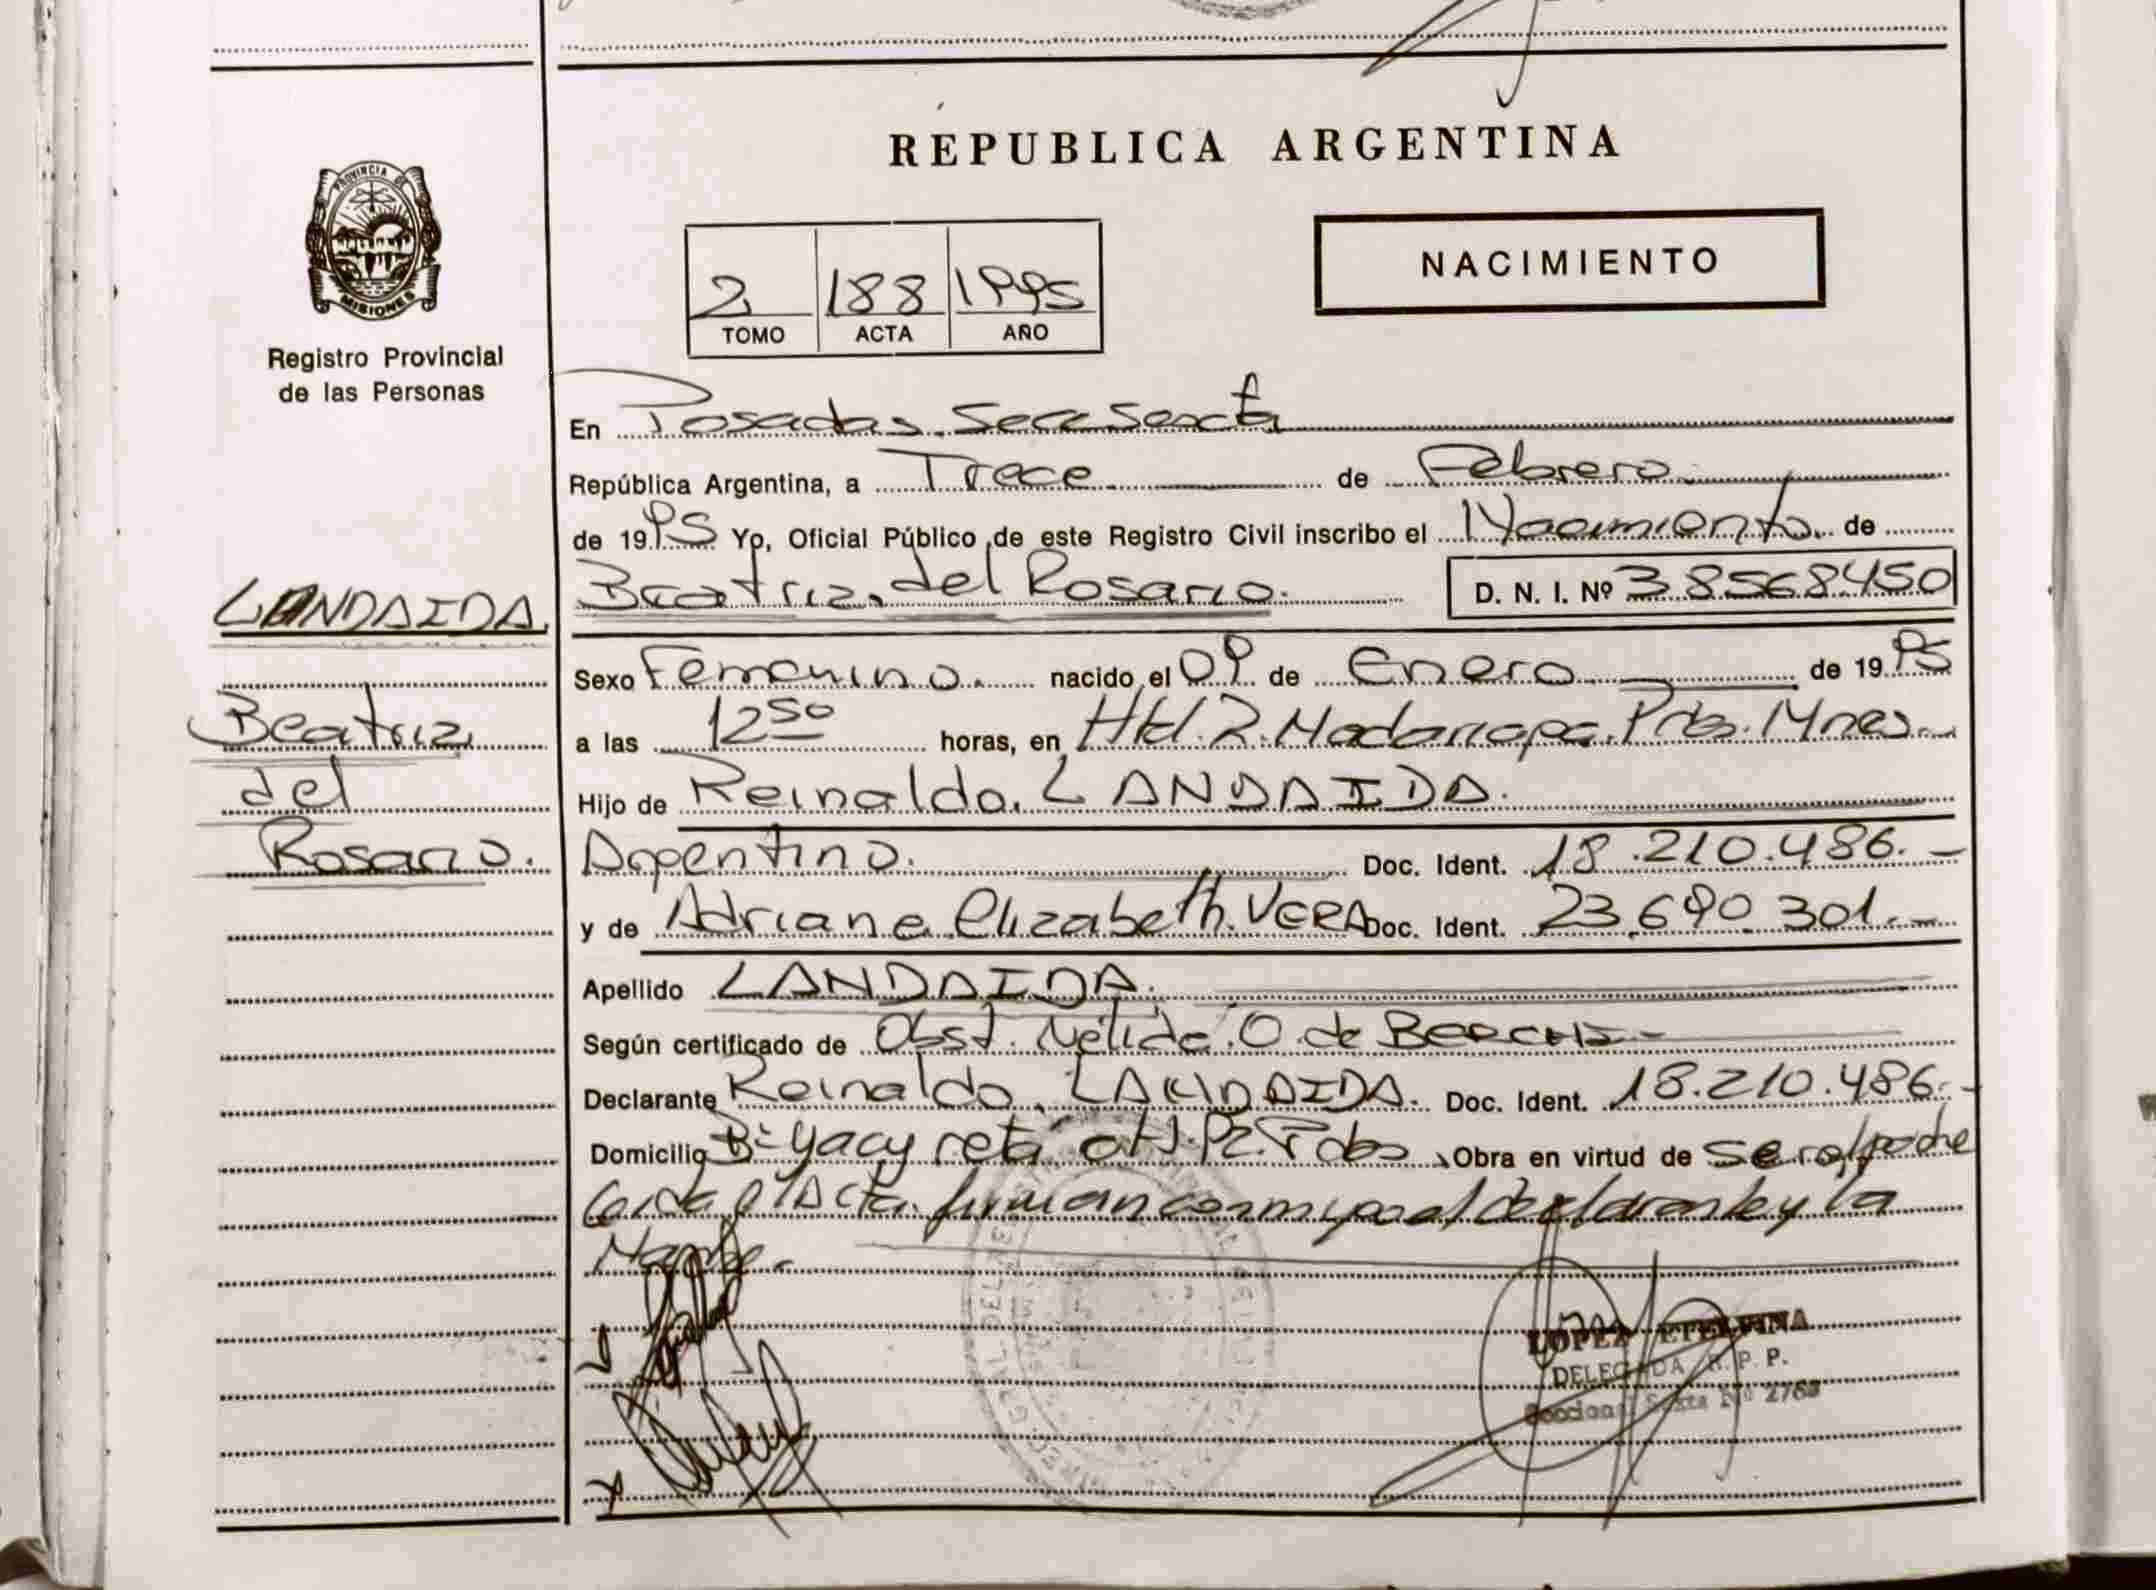 REPUBLICA ARGENTINA
PROVINCIA DE
MISIONES
Registro Provincial
de las Personas
NACIMIENTO
2 188 1995
TOMO ACTA AÑO
En Posadas. Secc Sexta
República Argentina, a Trece de Febrero
de 1995 Yo, Oficial Público de este Registro Civil inscribo el Nacimiento de
Beatriz del Rosario. D. N. I. Nº 38568450
LANDAIDA
Beatriz
del
Rosario.
Sexo Femenino. nacido el 09 de Enero de 1995
a las 12 50 horas, en Htal. R. Madariaga. Pdas. Mnes.
Hijo de Reinaldo. LANDAIDA.
Argentino. Doc. Ident. 18.210.486.-
y de Adriana Elizabeth. VERA Doc. Ident. 23.690.301.-
Apellido LANDAIDA.
Según certificado de Obst. Nélida O. de
Declarante Reinaldo. LANDAIDA. Doc. Ident. 18.210.486.-
Domicilio Bº Yacyretá Pdas Obra en virtud de ser el padre
Leida el Acta. firman conmigo el declarante y la
Madre.-
LOPEZ ETELVINA
DELEGADA R. P. P.
Seccional Sexta Nº